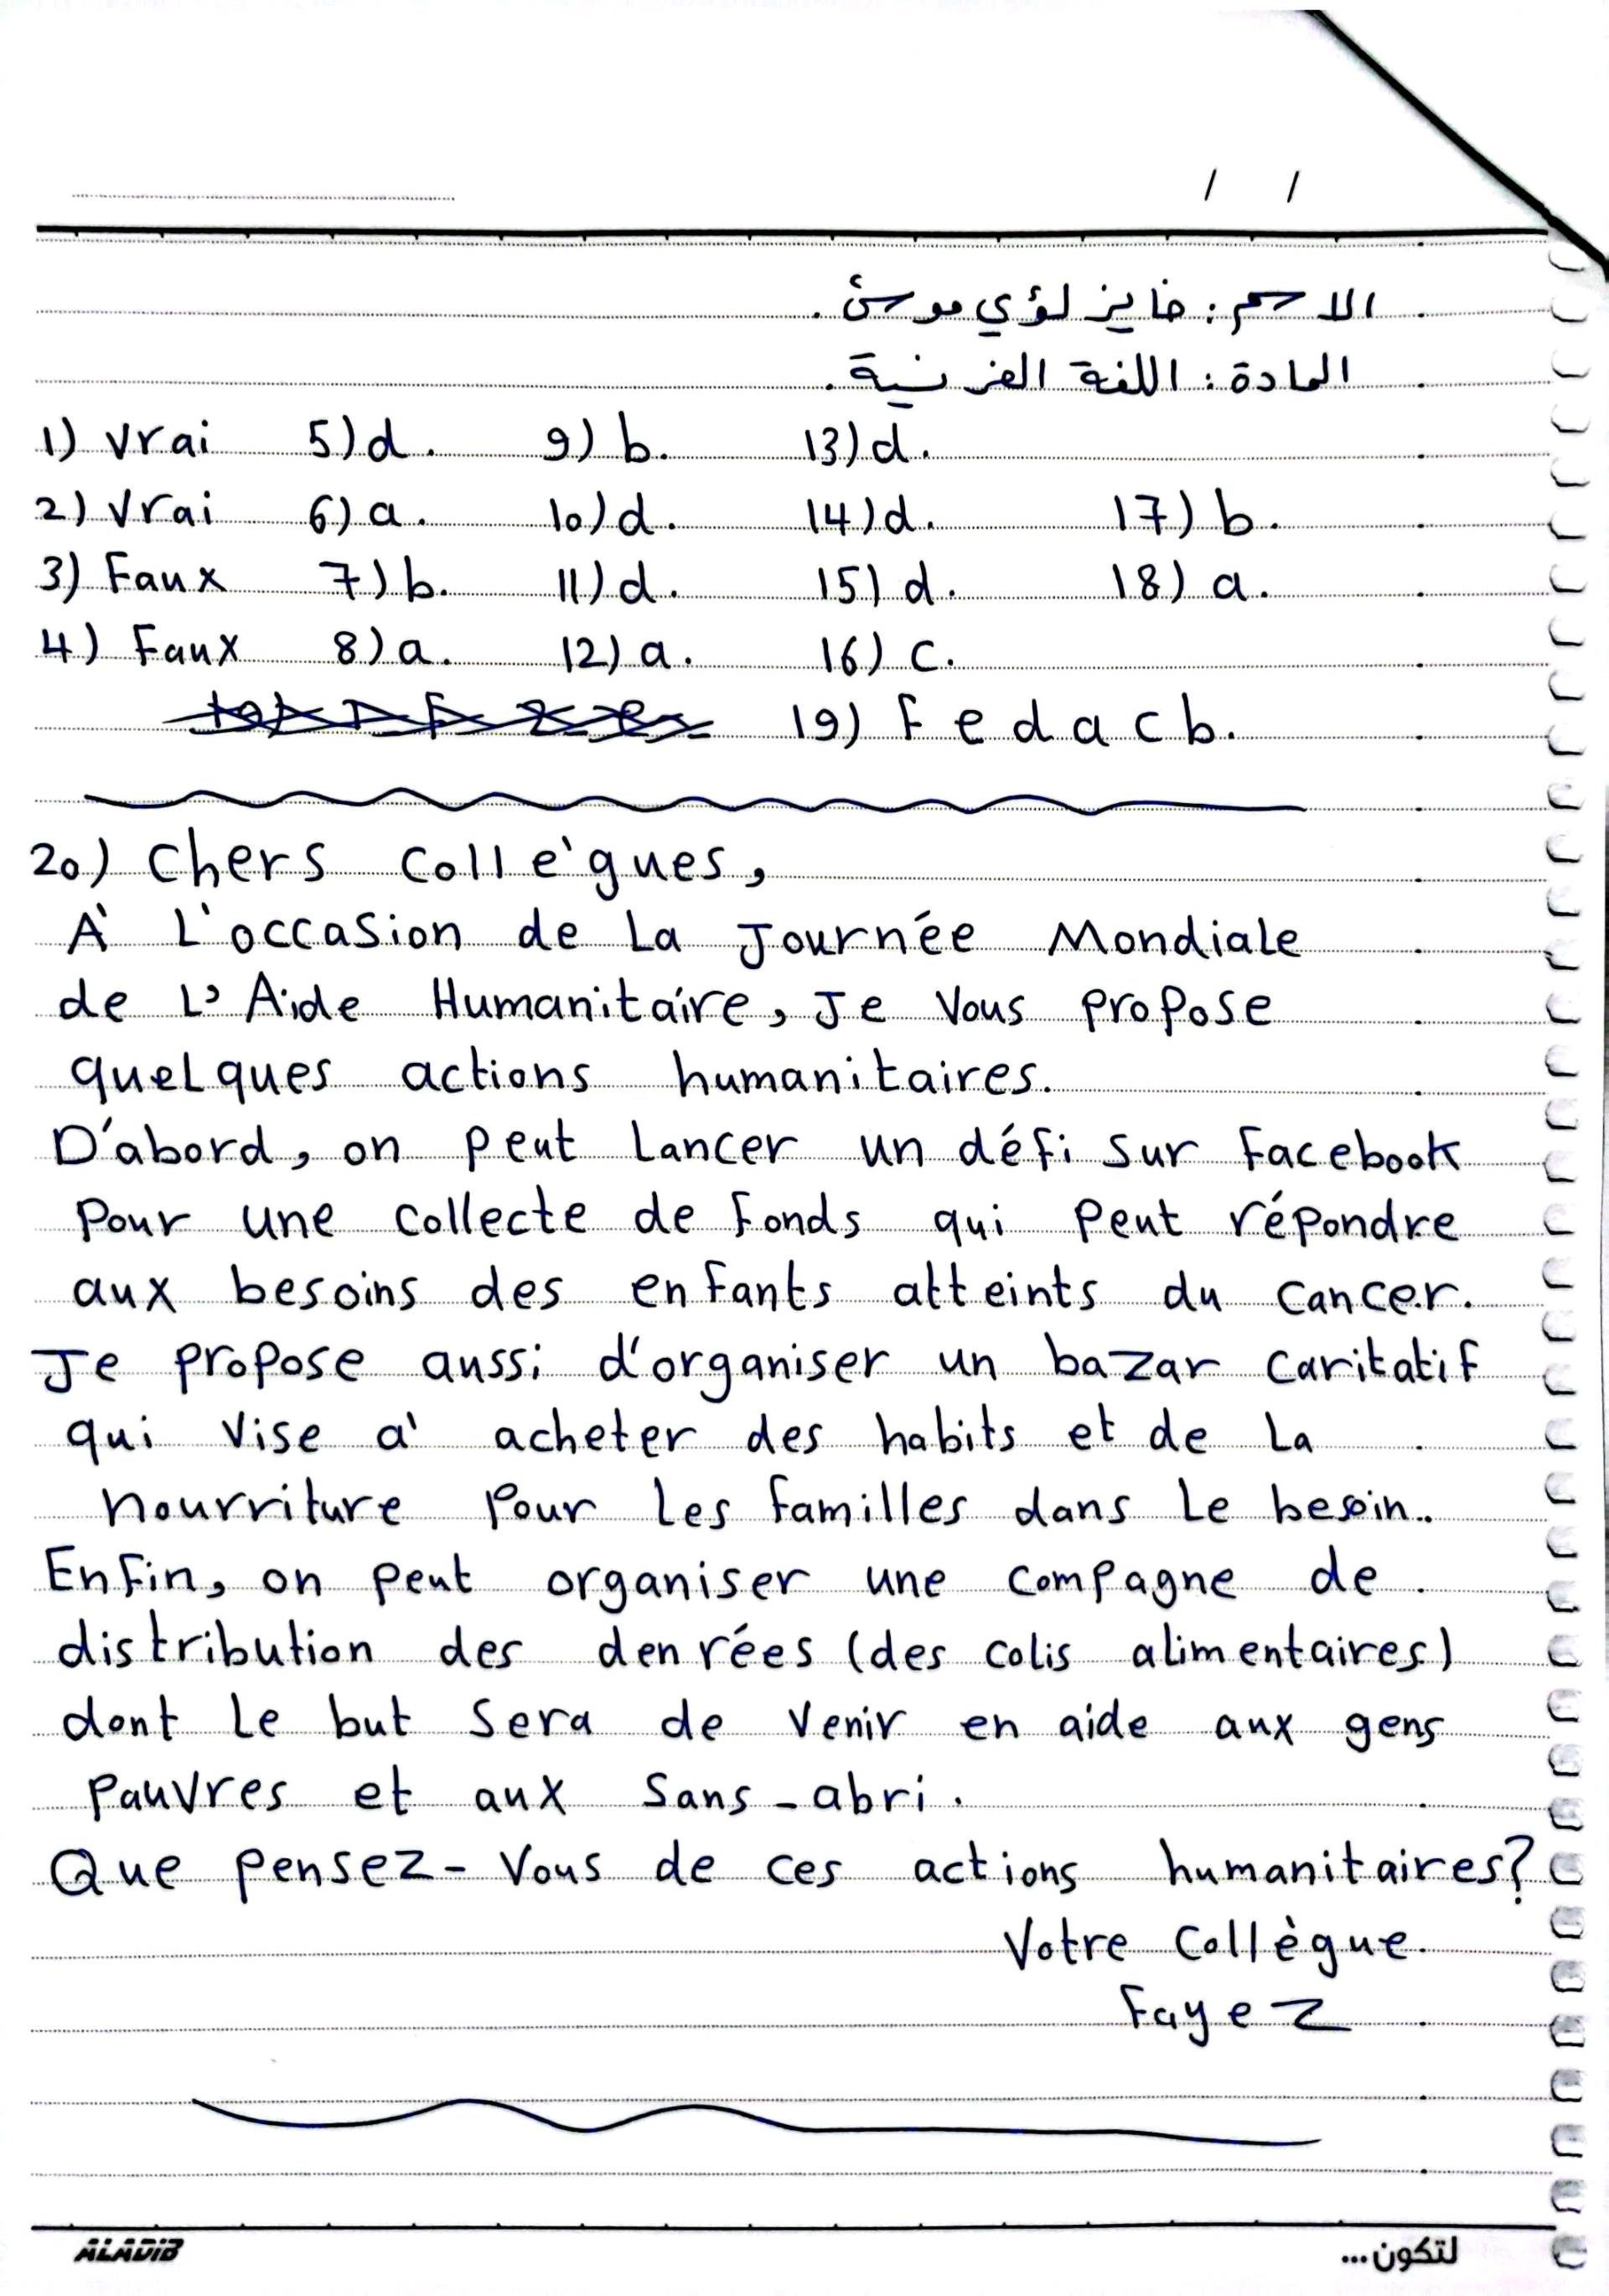 / /
الاسم : فايز لؤي موسى .
المادة : اللغة الفرنسية .
1) Vrai 5) d. 9) b. 13) d.
2) Vrai 6) a. 10) d. 14) d. 17) b.
3) Faux 7) b. 11) d. 15) d. 18) a.
4) Faux 8) a. 12) a. 16) c.
19) F e d a c b.
20) Chers Collègues,
À L'occasion de La Journée Mondiale
de L'Aide Humanitaire, Je Vous propose
quelques actions humanitaires.
D'abord, on peut Lancer un défi sur Facebook
Pour une collecte de Fonds qui peut répondre
aux besoins des enfants atteints du cancer.
Je propose aussi d'organiser un bazar caritatif
qui vise à acheter des habits et de La
nourriture Pour Les Familles dans Le besoin.
Enfin, on peut organiser une compagne de
distribution des denrées (des colis alimentaires)
dont Le but sera de Venir en aide aux gens
pauvres et aux sans-abri.
Que pensez-Vous de ces actions humanitaires?
Votre Collègue
Fayez
ALADIB لتكون...